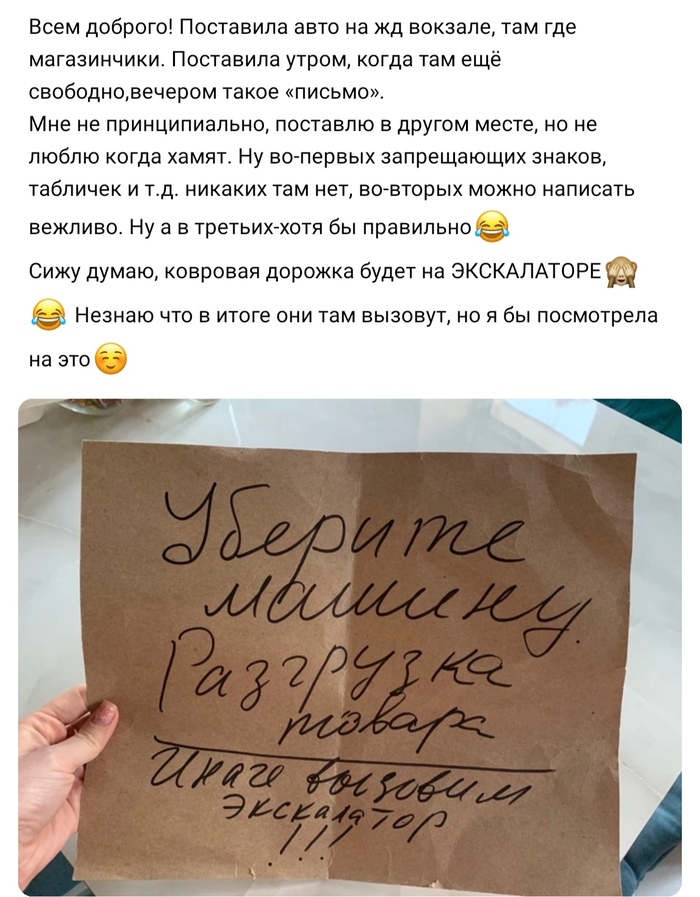 Всем доброго! Поставила авто на жд вокзале, там где
магазинчики. Поставила утром, когда там ещё
свободно,вечером такое «письмо».
Мне не принципиально, поставлю в другом месте, но не
люблю когда хамят. Ну во-первых запрещающих знаков,
табличек и т.д. никаких там нет, во-вторых можно написать
вежливо. Ну а в третьих-хотя бы правильно😂
Сижу думаю, ковровая дорожка будет на ЭКСКАЛАТОРЕ🙈
😂 Незнаю что в итоге они там вызовут, но я бы посмотрела
на это☺️
Уберите
машину.
Разгрузка
товара
Иначе вызовим
Экскалатор
!!!